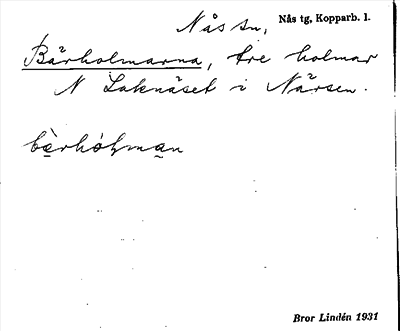 Nås sn, Nås tg, Kopparb. l.
Bärholmarna, tre holmar
N Laknäset i Närsen.
Bror Lindén 1931